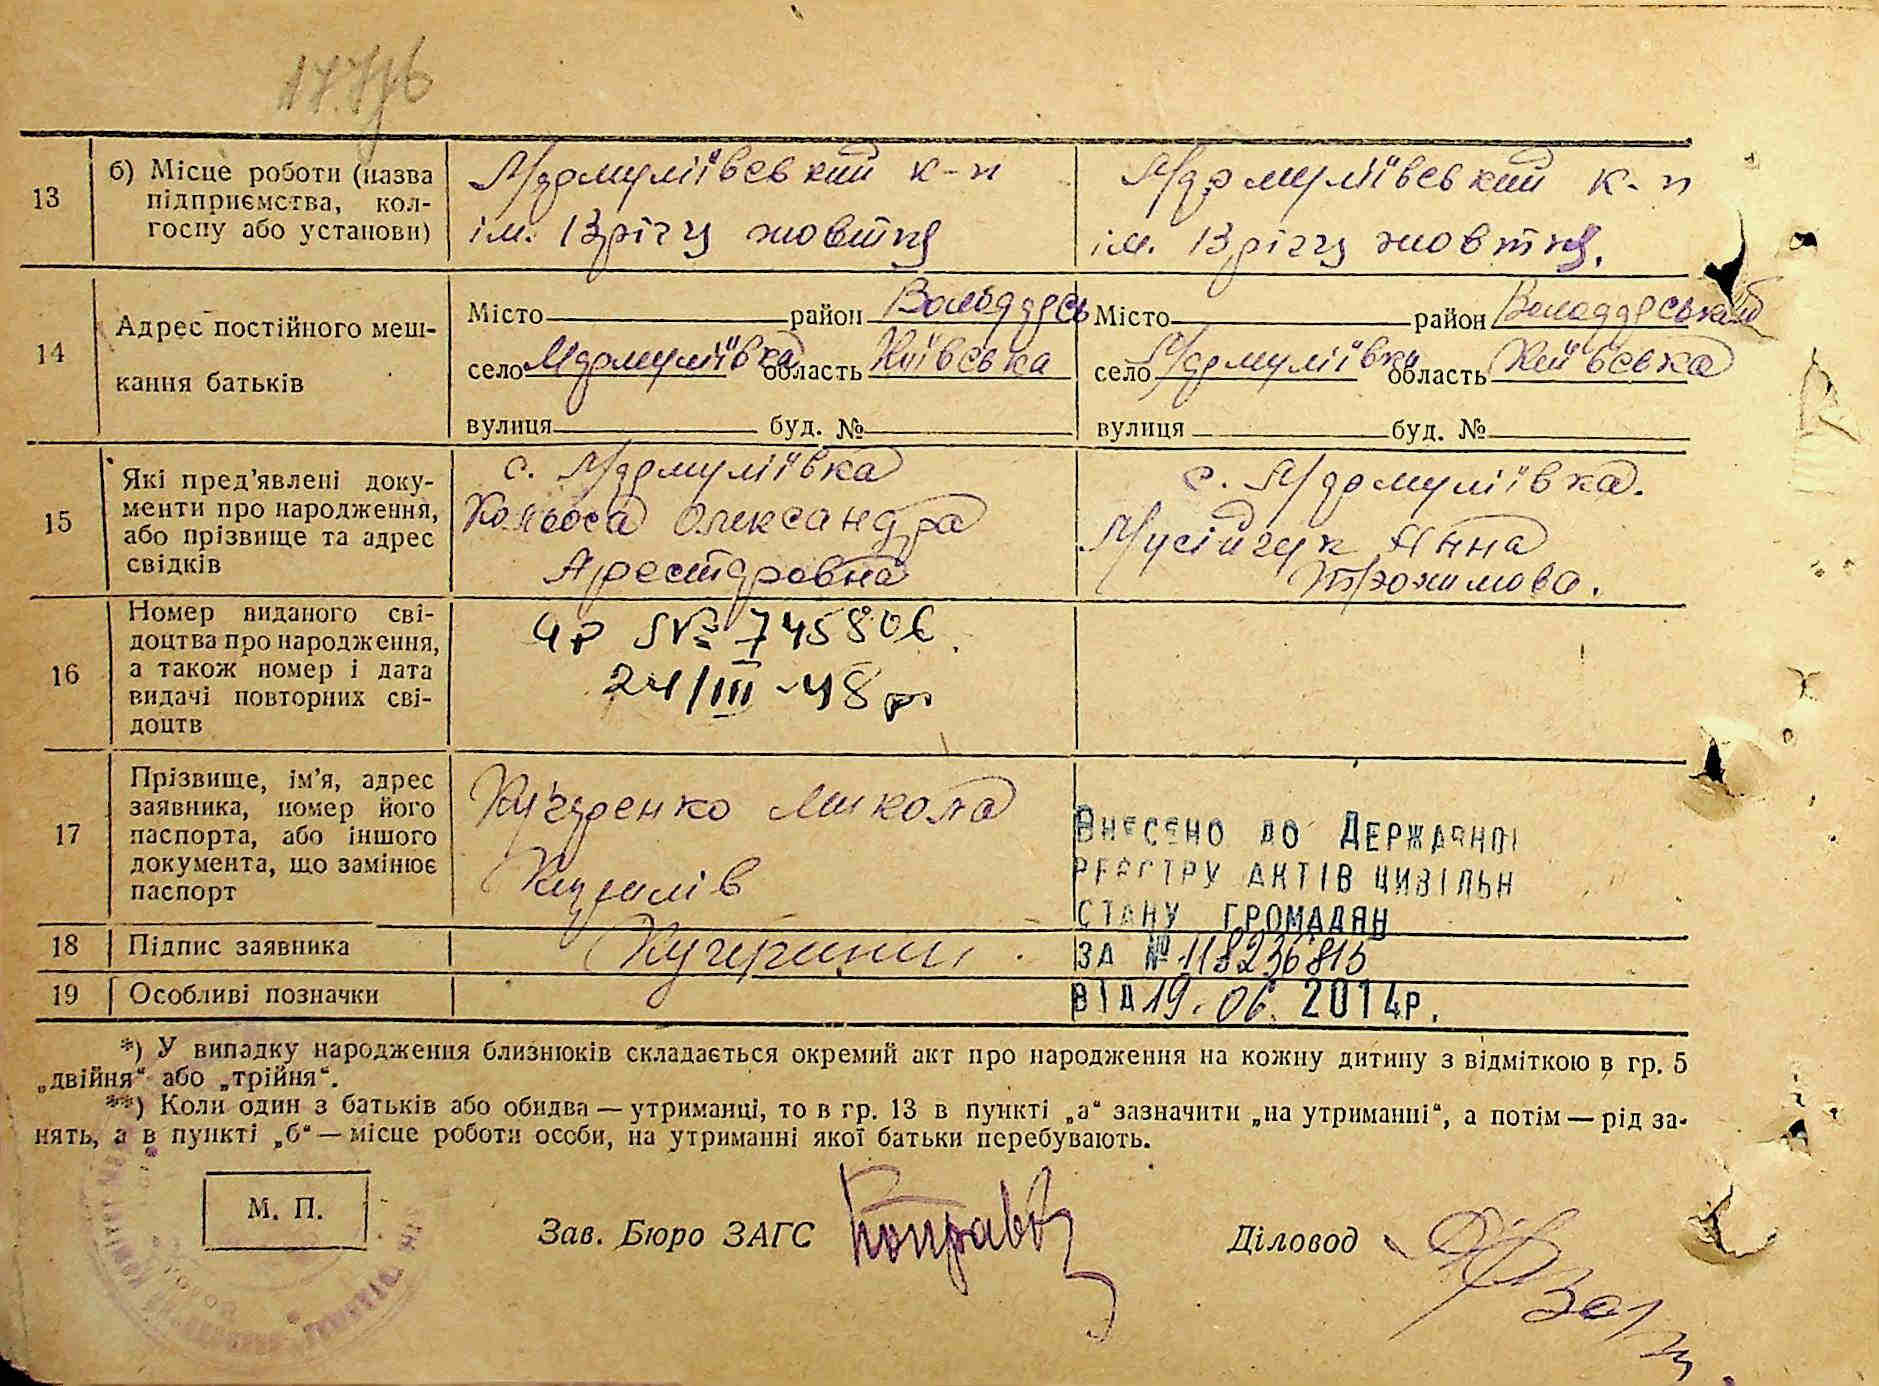 13
б) Місце роботи (назва
підприємства, кол-
госпу або установи)
к-п
ім. 13 річчя жовтня
к-п
ім. 13 річчя жовтня.
14
Адрес постійного меш-
кання батьків
Місто район
село область Київська
вулиця буд. №
Місто район Володарський
село область Київська
вулиця буд. №
15
Які пред'явлені доку-
менти про народження,
або прізвище та адрес
свідків
с.
Олександра
с.
Мусійчук Анна
Трохимова.
16
Номер виданого сві-
доцтва про народження,
а також номер і дата
видачі повторних сві-
доцтв
№ 745806
24/III-48 р.
17
Прізвище, ім'я, адрес
заявника, номер його
паспорта, або іншого
документа, що замінює
паспорт
Микола
Внесено до Державног
реєстру актів цивільн
стану громадян
за № 118236815
від 19.06.2014р.
18
Підпис заявника
19
Особливі позначки
*) У випадку народження близнюків складається окремий акт про народження на кожну дитину з відміткою в гр. 5
„двійня“ або „трійня“.
**) Коли один з батьків або обидва — утриманці, то в гр. 13 в пункті „а“ зазначити „на утриманні“, а потім — рід за-
нять, а в пункті „б“ — місце роботи особи, на утриманні якої батьки перебувають.
М. П.
Зав. Бюро ЗАГС
Діловод